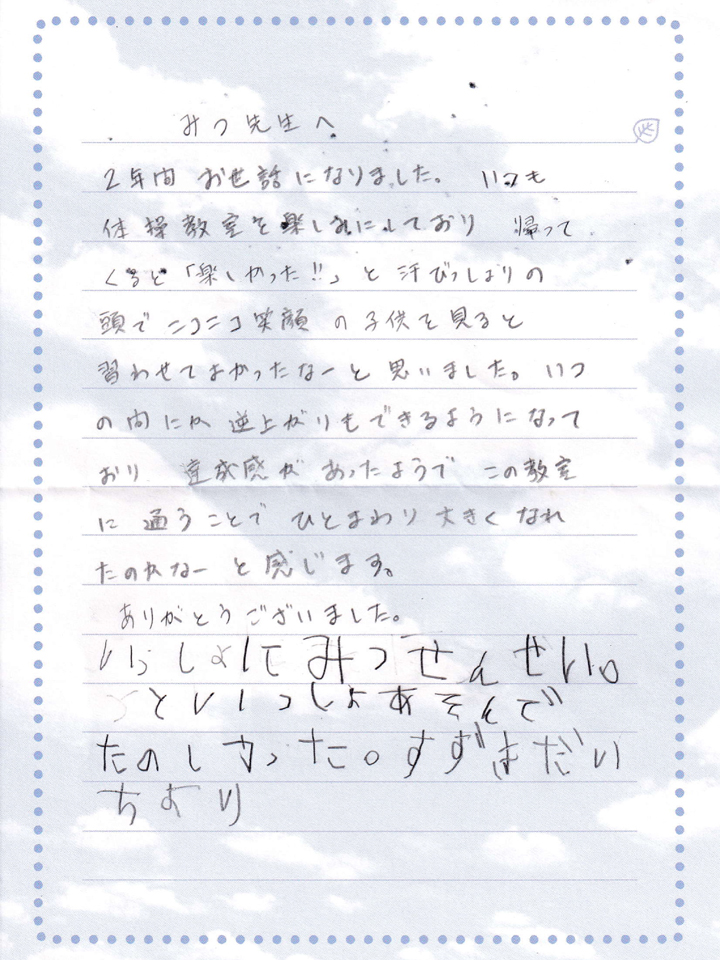 みつ先生へ
2年間 お世話になりました。 いつも
体操教室を楽しみにしており 帰って
くると「楽しかった!!」と 汗びっしょりの
頭で ニコニコ笑顔 の 子供を見ると
習わせてよかったなーと 思いました。いつ
の間にか 逆上がりもできるようになって
おり 達成感が あったようで この教室
に 通うことで ひとまわり 大きく なれ
たのかなー と 感じます。
ありがとうございました。
いっしょにてみつせんせい。
といっしょあそんで
たのしかった。すずきだい
ちより